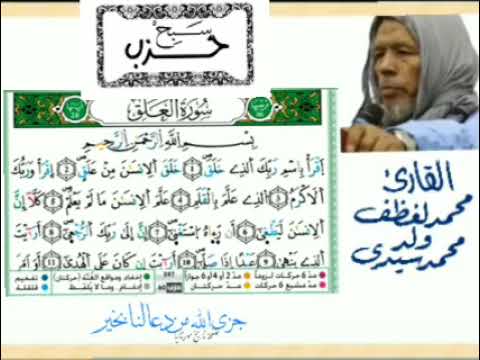 سبح
حزب
سُورَةُ العَلَقِ
بِسْمِ اللَّهِ الرَّحْمَنِ الرَّحِيمِ
اقْرَأْ بِاسْمِ رَبِّكَ الَّذِي خَلَقَ (1) خَلَقَ الْإِنسَانَ مِنْ عَلَقٍ (2) اقْرَأْ وَرَبُّكَ
الْأَكْرَمُ (3) الَّذِي عَلَّمَ بِالْقَلَمِ (4) عَلَّمَ الْإِنسَانَ مَا لَمْ يَعْلَمْ (5) كَلَّا إِنَّ
الْإِنسَانَ لَيَطْغَى (6) أَن رَّآهُ اسْتَغْنَى (7) إِنَّ إِلَى رَبِّكَ الرُّجْعَى (8) أَرَأَيْتَ
الَّذِي يَنْهَى (9) عَبْدًا إِذَا صَلَّى (10) أَرَأَيْتَ إِن كَانَ عَلَى الْهُدَى (11) أَوْ أَمَرَ
مد 6 حركات لزوماً مد 2 أو 4 أو 6 جوازاً إخفاء ومواقع الغنة (حركتان) تفخيم
مد مشبع 6 حركات مد حركتان إدغام وما لا يلفظ قلقلة
597
القارئ
محمد لغظف
ولد
محمد سيدي
جزى الله من دعا لنا بخير